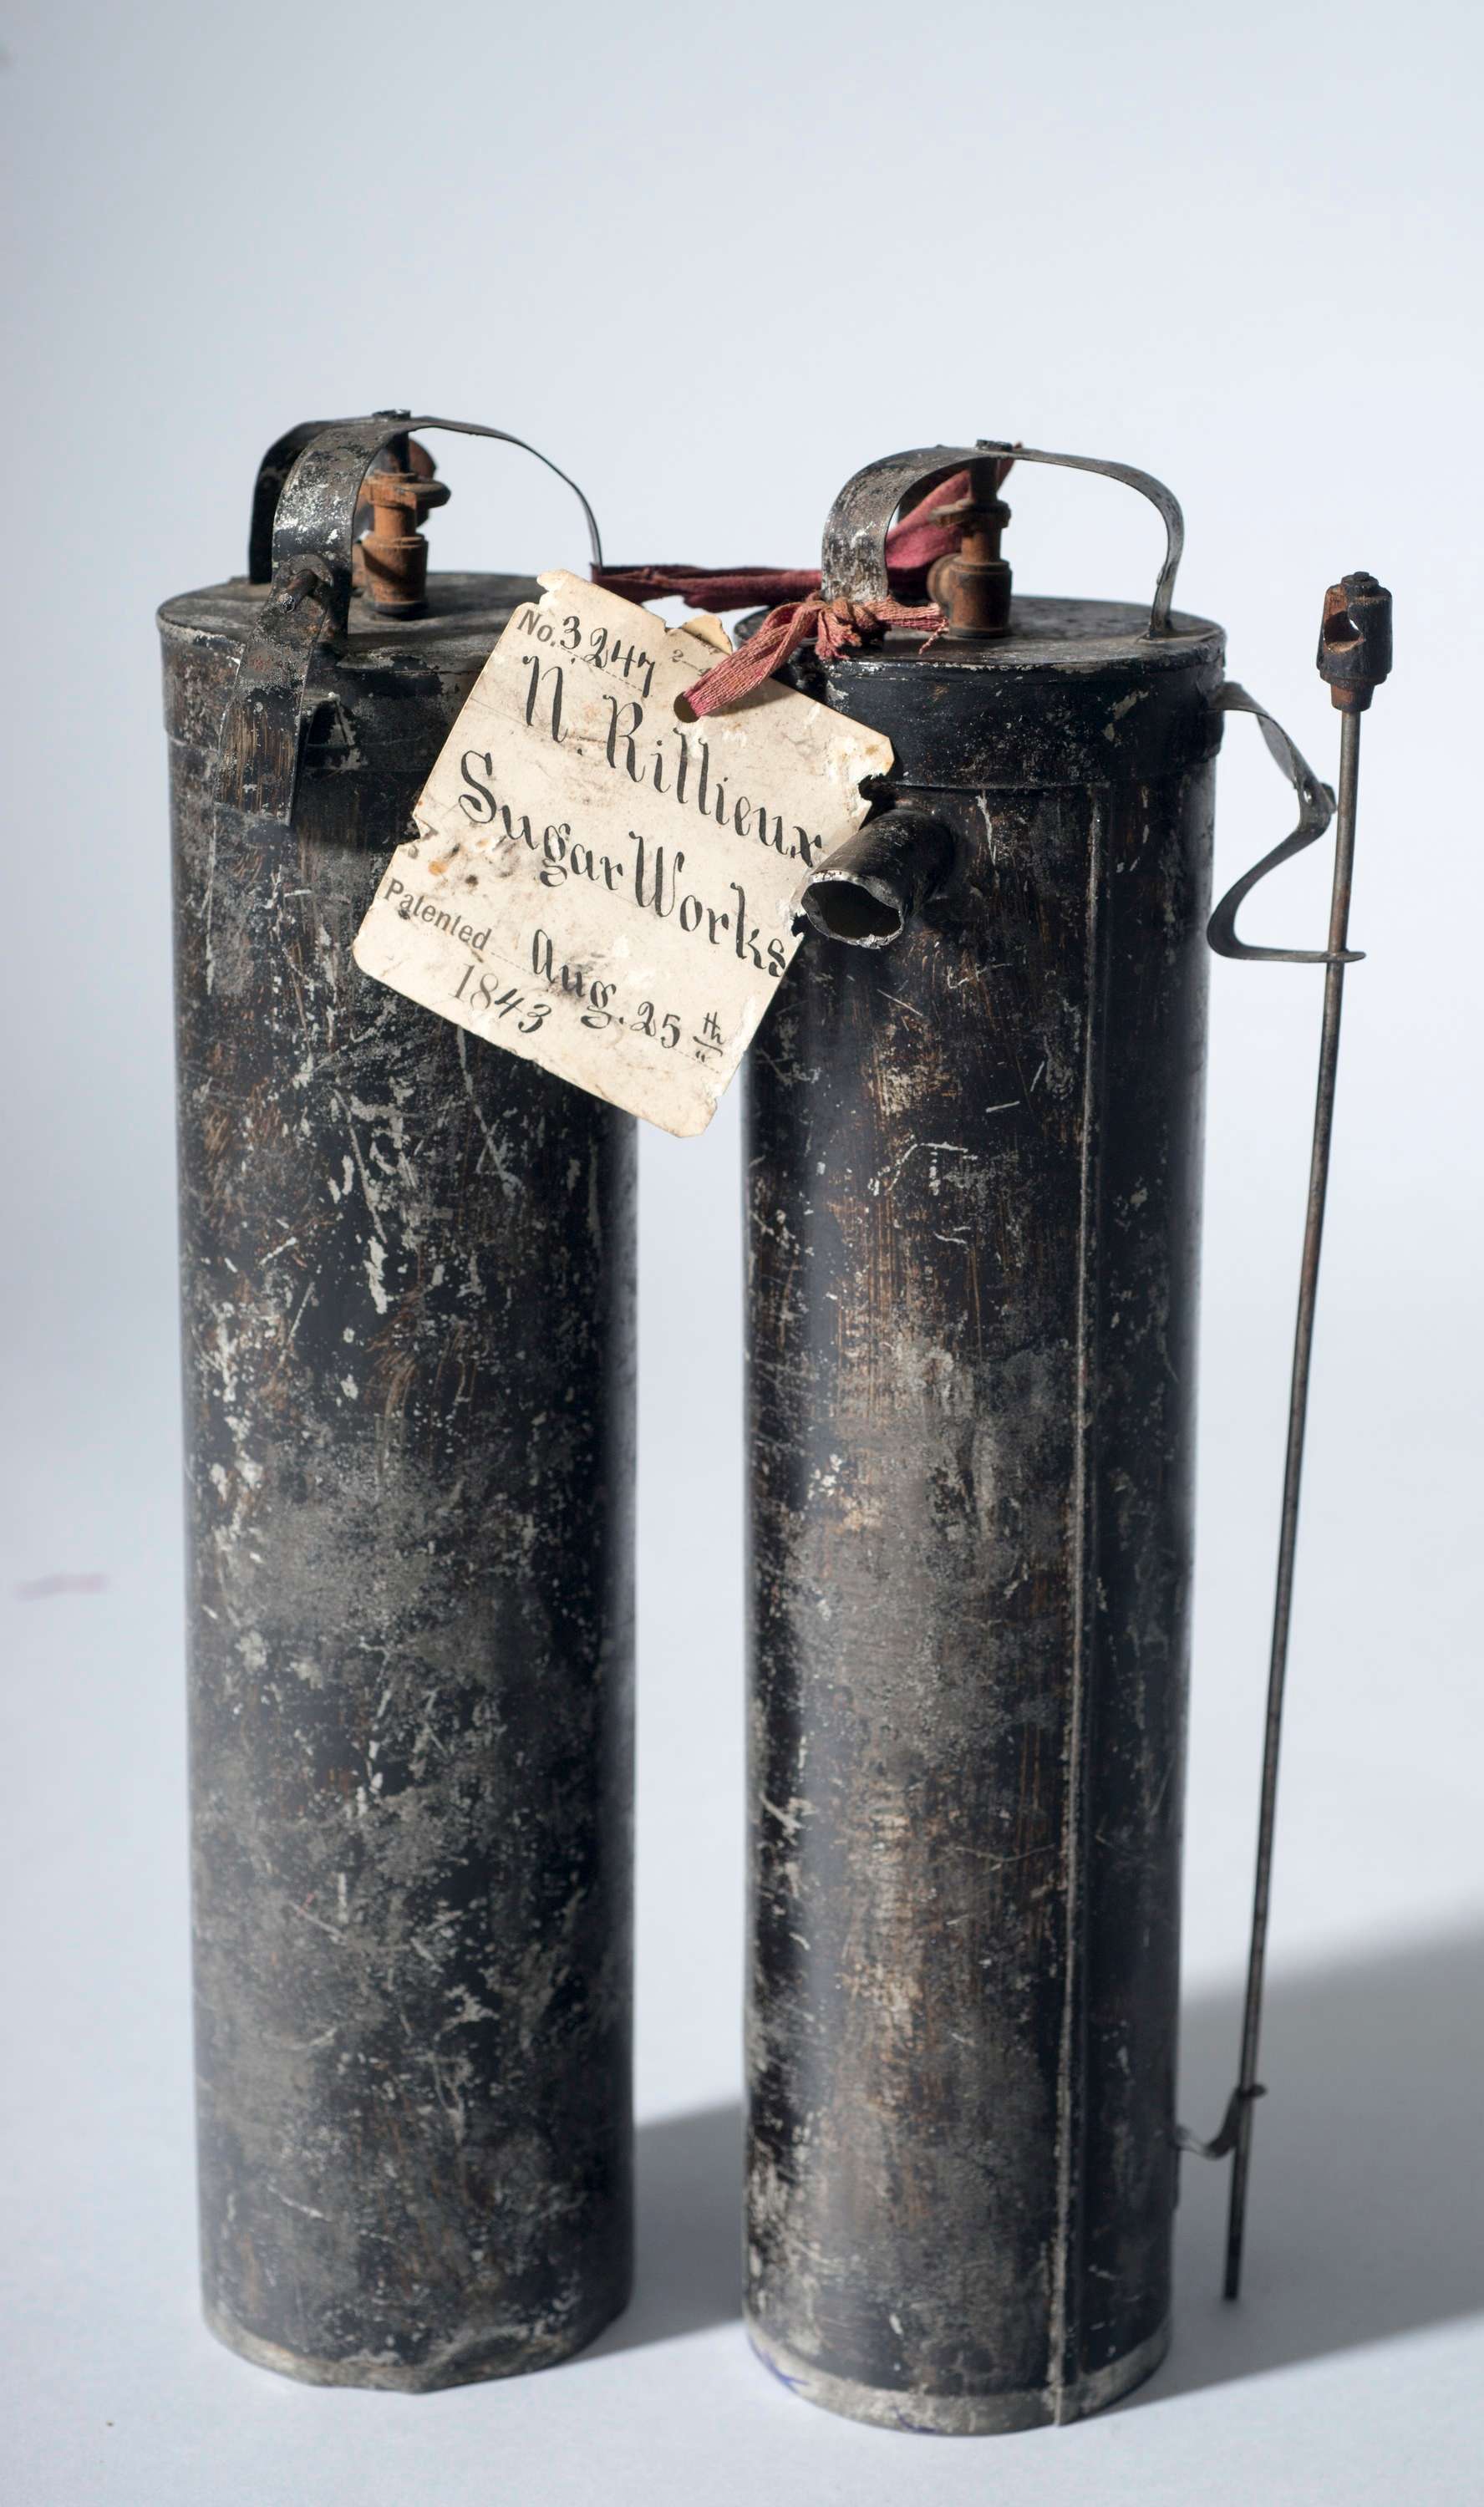 No. 3247
N. Rillieux
Sugar Works
Patented Aug. 25th
1843